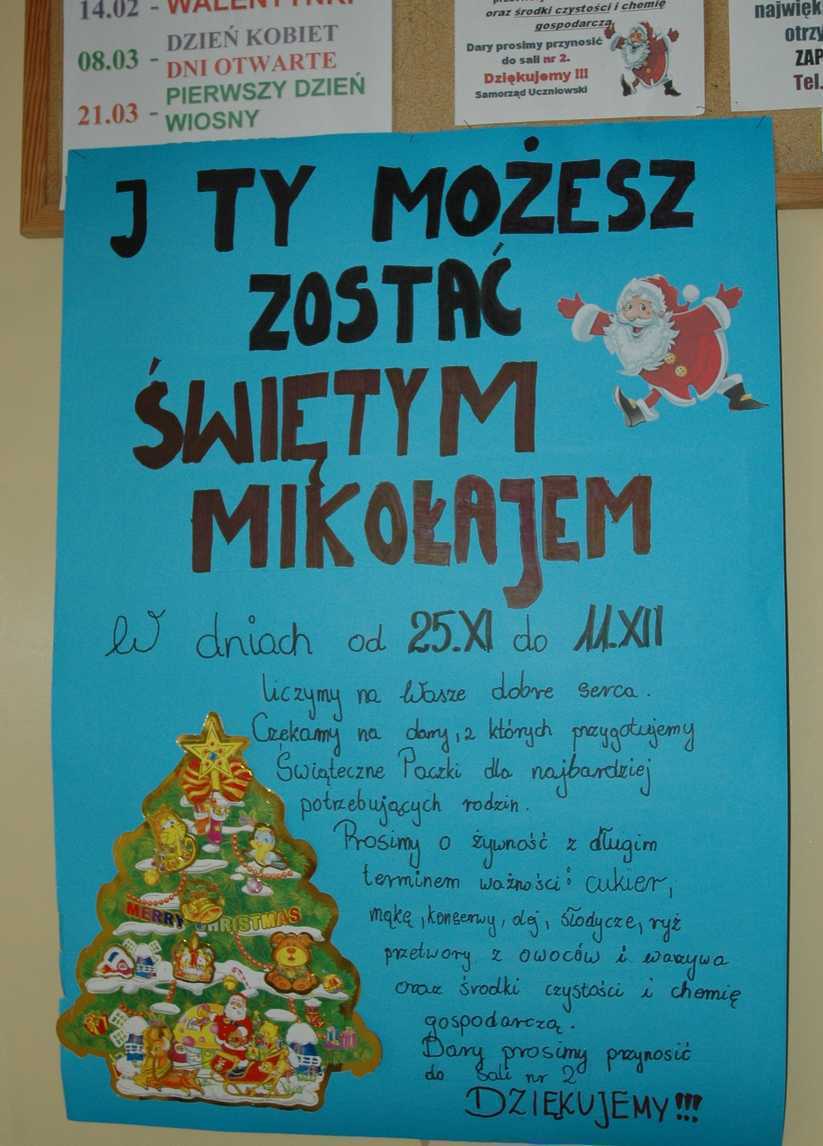 14.02 - WALENTYNKI
08.03 - DZIEŃ KOBIET
DNI OTWARTE
21.03 - PIERWSZY DZIEŃ
WIOSNY
oraz środki czystości i chemię
gospodarczą
Dary prosimy przynosić
do sali nr 2.
Dziękujemy !!!
Samorząd Uczniowski
najwięk
otrzy
ZAP
Tel.
J TY MOŻESZ
ZOSTAĆ
ŚWIĘTYM
MIKOŁAJEM
W dniach od 25.XI do 11.XII
liczymy na Wasze dobre serca.
Czekamy na dary, z których przygotujemy
Świąteczne Paczki dla najbardziej
potrzebujących rodzin.
Prosimy o żywność z długim
terminem ważności: cukier,
mąkę, konserwy, olej, słodycze, ryż
przetwory z owoców i warzywa
oraz środki czystości i chemię
gospodarczą.
Dary prosimy przynosić
do sali nr 2
DZIĘKUJEMY!!!
MERRY CHRISTMAS